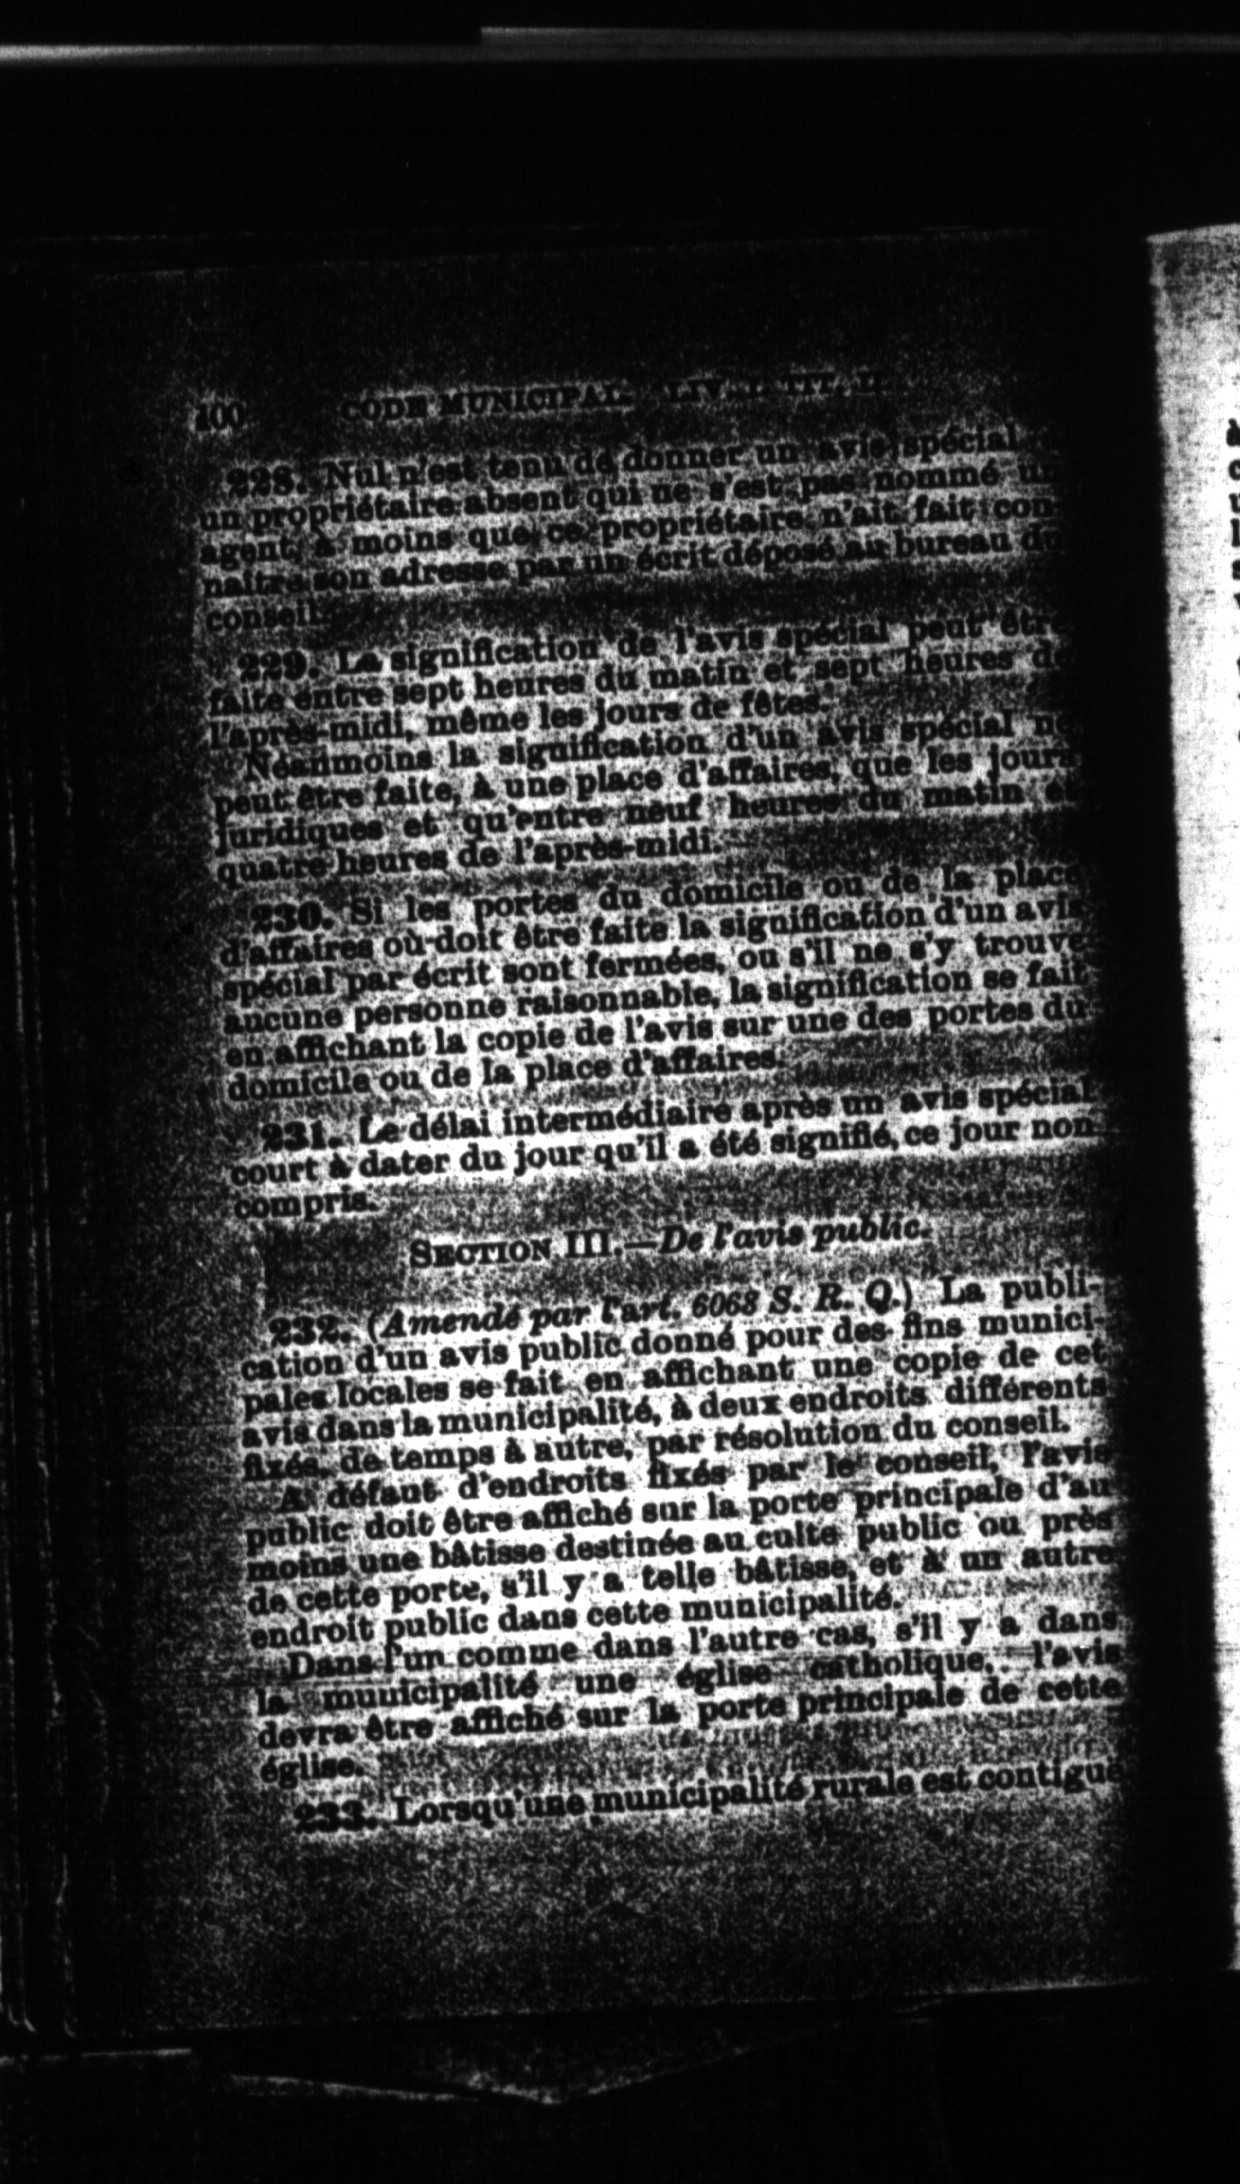 100 CODE MUNICIPAL. LIV. I. TIT. II.
228. Nul n'est tenu de donner un avis spécial
un propriétaire absent qui ne s'est pas nommé un
agent, à moins que ce propriétaire n'ait fait con-
naître son adresse par un écrit déposé au bureau du
conseil.
229. La signification de l'avis spécial peut être
faite entre sept heures du matin et sept heures de
l'après-midi, même les jours de fêtes.
Néanmoins la signification d'un avis spécial ne
peut être faite, à une place d'affaires, que les jours
juridiques et qu'entre neuf heures du matin et
quatre heures de l'après-midi.
230. Si les portes du domicile ou de la place
d'affaires où doit être faite la signification d'un avis
spécial par écrit sont fermées, ou s'il ne s'y trouve
aucune personne raisonnable, la signification se fait
en affichant la copie de l'avis sur une des portes du
domicile ou de la place d'affaires.
231. Le délai intermédiaire après un avis spécial
court à dater du jour qu'il a été signifié, ce jour non
compris.
SECTION III.—De l'avis public.
232. (Amendé par l'art. 6068 S. R. Q.) La publi-
cation d'un avis public donné pour des fins munici-
pales locales se fait en affichant une copie de cet
avis dans la municipalité, à deux endroits différents
fixés, de temps à autre, par résolution du conseil.
A défaut d'endroits fixés par le conseil, l'avis
public doit être affiché sur la porte principale d'au
moins une bâtisse destinée au culte public ou près
de cette porte, s'il y a telle bâtisse, et à un autre
endroit public dans cette municipalité.
Dans l'un comme dans l'autre cas, s'il y a dans
la municipalité une église catholique, l'avis
devra être affiché sur la porte principale de cette
église.
233. Lorsqu'une municipalité rurale est contiguë